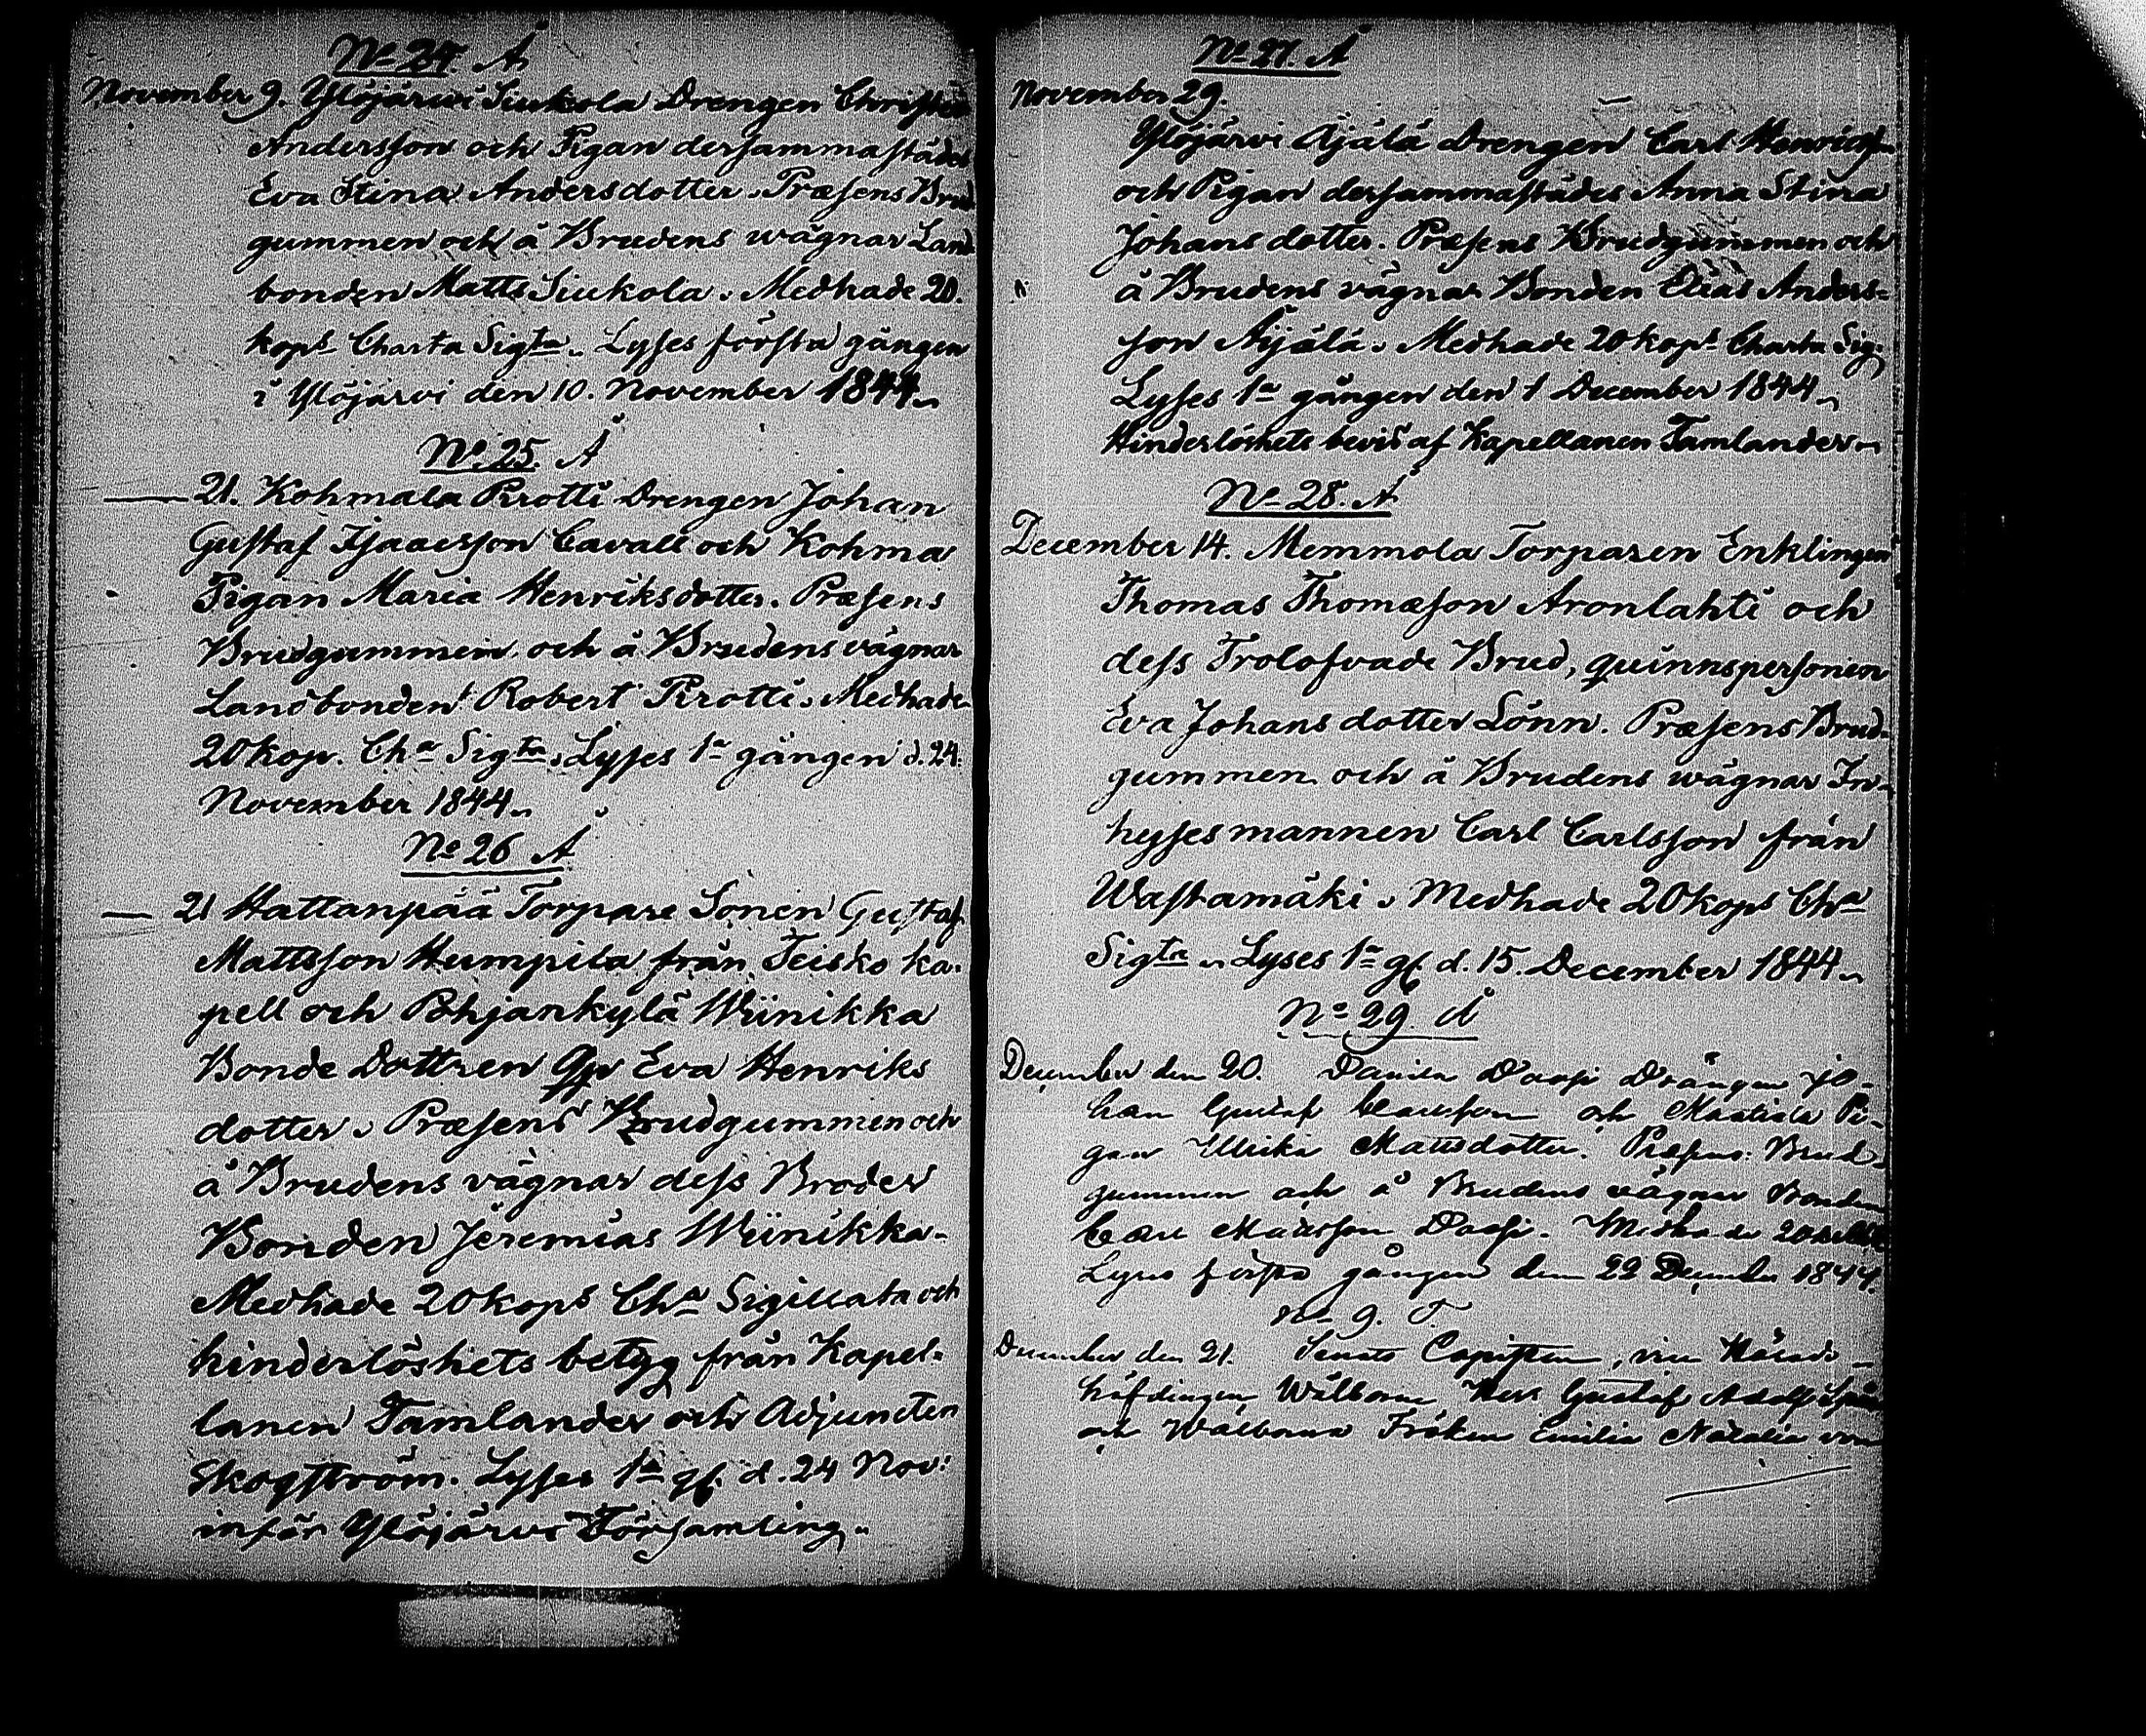 No 24. Å
November 9. Ylöjärwi Siukola Drengen Christer
Andersson och Pigan dersammastädes
Eva Stina Andersdotter. Præsens Brud
gummen och å Brudens wägnar Land
bonden Matts Siukola. Medhade 20.
kops Charta Sigta. Lyses första gången
i Ylöjärvi den 10. November 1844.
No 25. Å
21. Kohmala Pirotti Drengen Johan
Gustaf Isaacsson Cavali och Kohma
Pigan Maria Henriksdotter. Præsens
Brudgummen och å Brudens vägnar
Landbonden Robert Pirotti. Medhade
20 kop. Cha Sigta. Lyses 1a gången d. 24.
November 1844.
No 26 Å
21 Hattanpää Torpare Sonen Gustaf
Mattsson Humpila från Teisko ka-
pell och Pohjankylä Wiinikka
Bonde Dottren Eva Henriks
dotter. Præsens Brudgummen och
å Brudens vägnar dess Broder
Bonden Jeremias Wiinikka.
Medhade 20 kops Cha Sigillata och
hinderlöshets betyg från Kapel-
lanen Tamlander och Adjuncten
Skogström. Lyses 1a gg. d. 24 Nov:
inför Ylöjärvi Församling.
No 27. Å
November 29.
Ylöjärvi Äijälä Drengen Carl Henricss.
och Pigan dersammastädes Anna Stina
Johans dotter. Præsens Brudgummen och
å Brudens vägnar Bonden Elias Anders-
son Äijälä. Medhade 20 kops Charta Sig:
Lyses 1a gången den 1 December 1844.
Hinderlöshets bevis af Kapellanen Tamlander.
No 28. Å
December 14. Memmola Torparen Enklingen
Thomas Thomæson Aronlahti och
dess Trolofvade Brud, quinnspersonen
Eva Johans dotter Lönn. Præsens Brud-
gummen och å Brudens wägnar In-
hysesmannen Carl Carlsson från
Wastamäki. Medhade 20 kops Cha
Sigta. Lyses 1a gg. d. 15. December 1844.
No 29. Å
December den 20. Daniel Drängen Jo-
han Gustaf och Pi-
gan Ulrika Mattsdotter. Præsens Brud-
gummen och å Brudens vägnar Bonden
Carl Mattsson. Medhade 20
Lyses första gången den 22 December 1844.
No 9. T.
December den 21. Senats Copisten, vice Härads-
höfdingen Wälborne Herr Gustaf Adolf
och Wälborna Fröken Emilia Natalia von